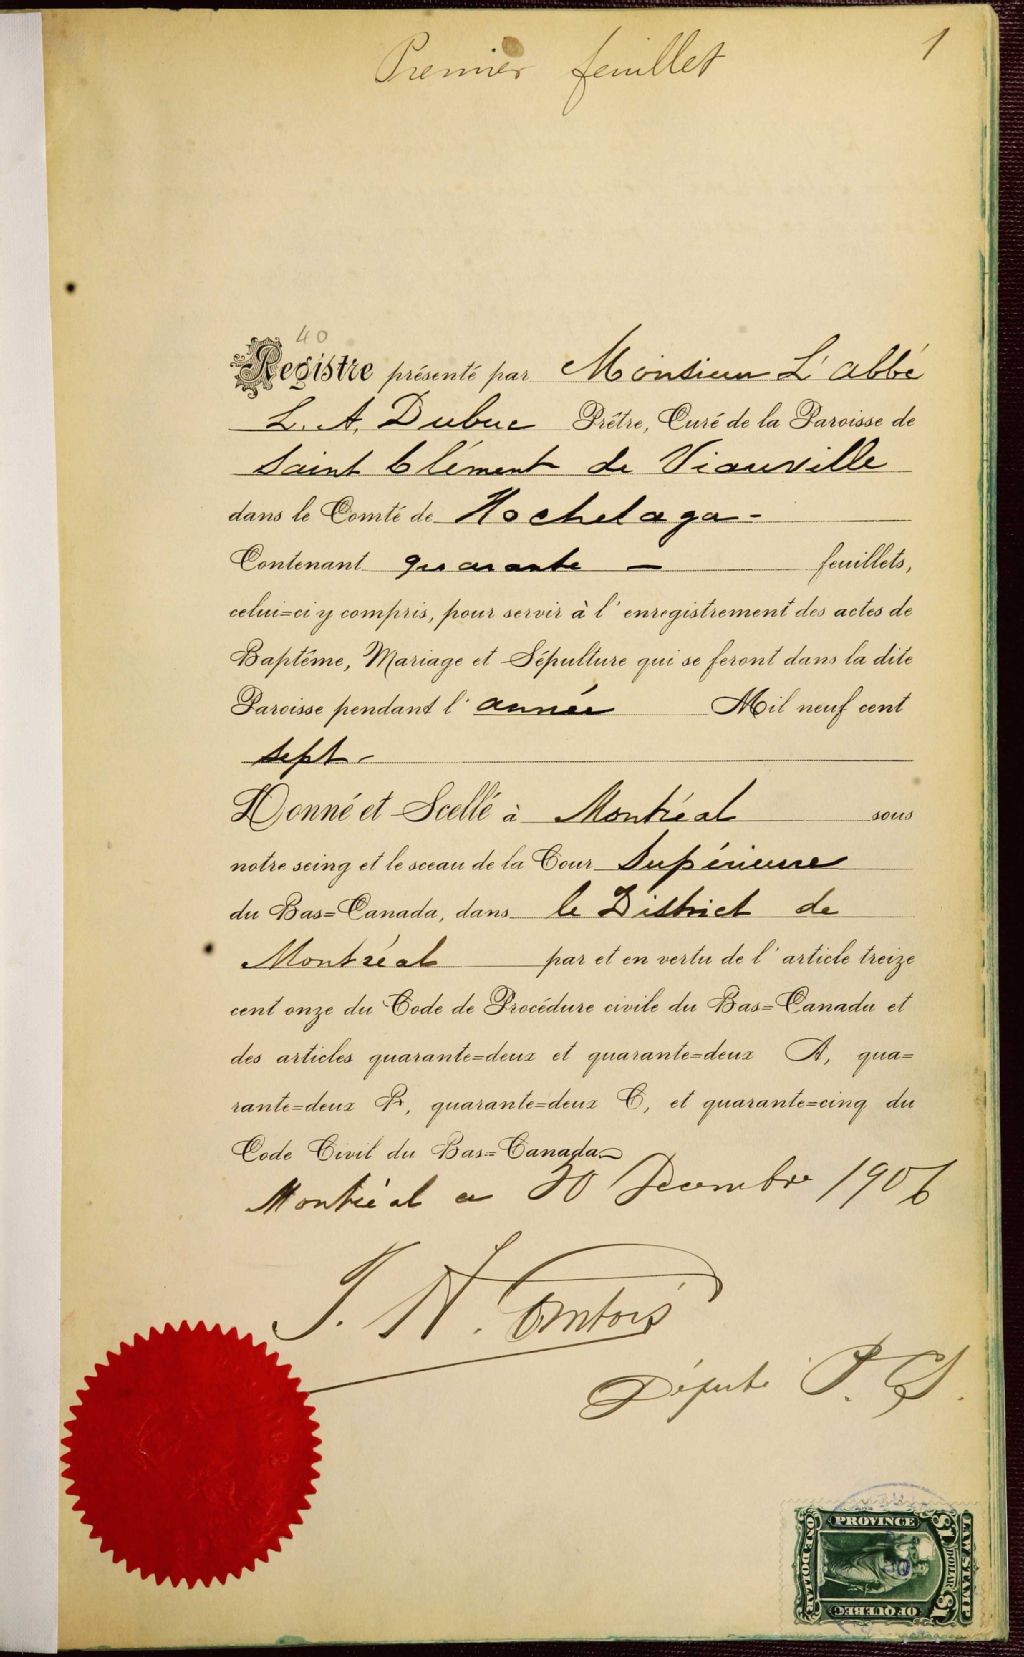 Premier feuillet
1
40
Registre présenté par Monsieur L'abbé
L. A. Dubuc Prêtre, Curé de la Paroisse de
Saint Clément de Viauville
dans le Comté de Hochelaga -
Contenant quarante — feuillets,
celui=ci y compris, pour servir à l'enregistrement des actes de
Baptême, Mariage et Sépulture qui se feront dans la dite
Paroisse pendant l'année Mil neuf cent
sept -
Donné et Scellé à Montréal sous
notre seing et le sceau de la Cour Supérieure
du Bas=Canada, dans le District de
Montréal par et en vertu de l'article treize
cent onze du Code de Procédure civile du Bas=Canada et
des articles quarante=deux et quarante=deux A, qua=
rante=deux B, quarante=deux C, et quarante=cinq du
Code Civil du Bas=Canada.
Montréal ce 30 Decembre 1906
J. H.
Député P. C. S.
PROVINCE
OF QUEBEC
LAW STAMP
$1 DOLLAR $1
ONE DOLLAR